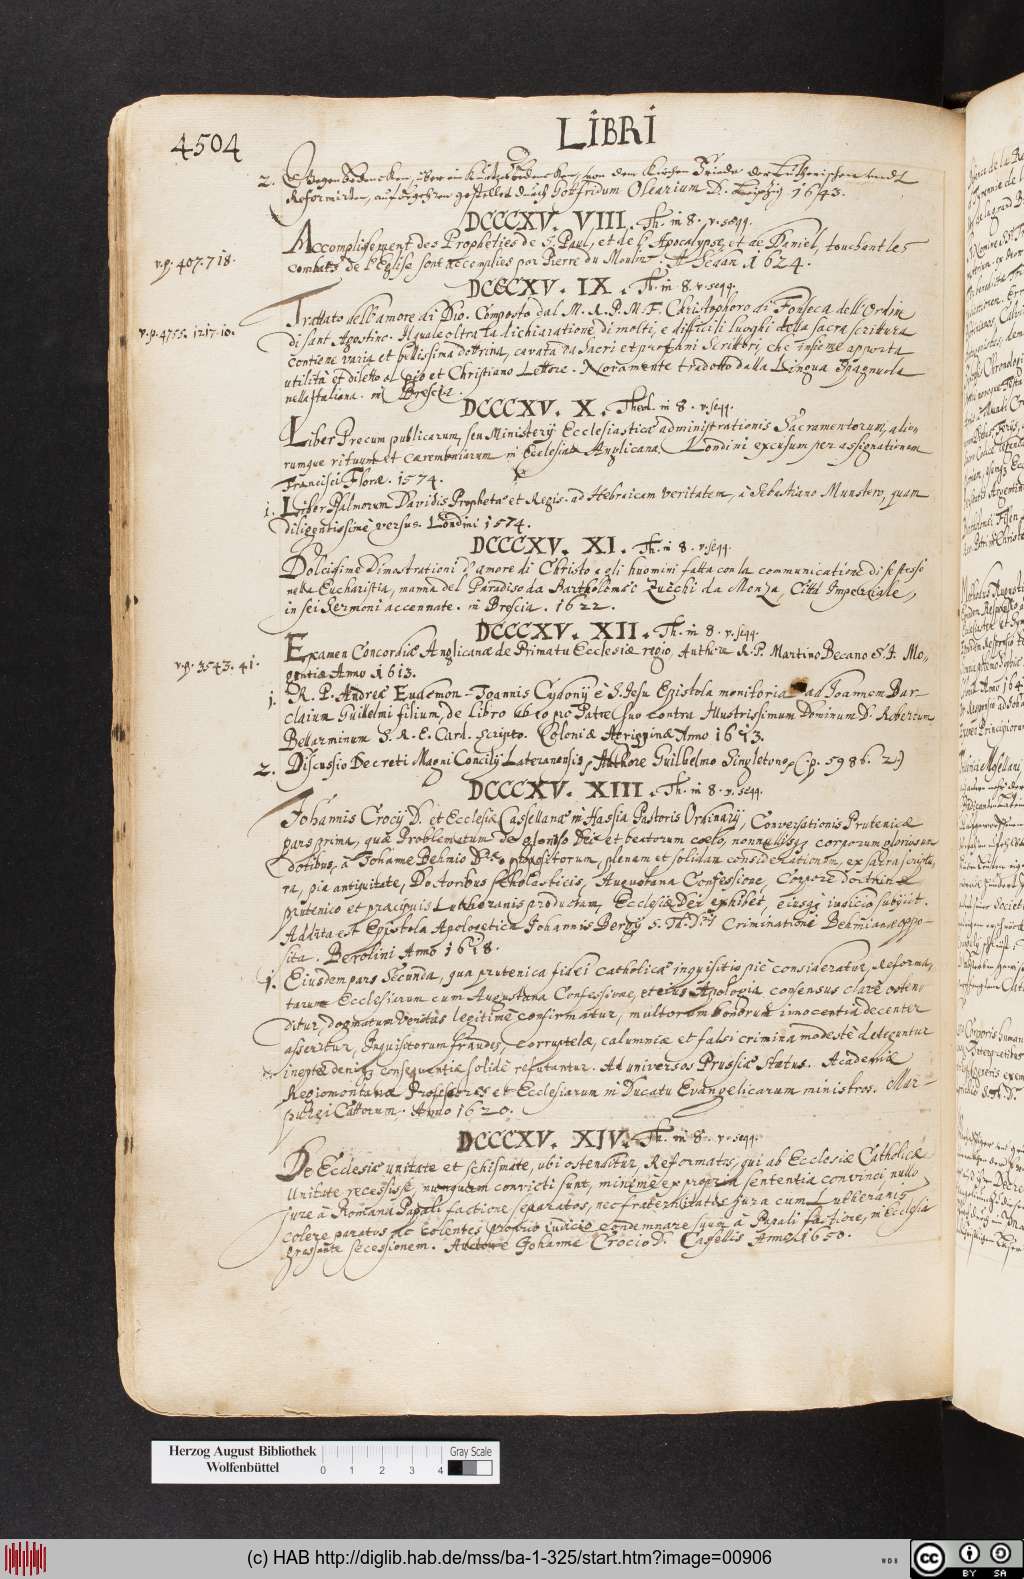 4504
LIBRI
2. Gegenbedencken, über ein Bedencken, von dem Kirchen Friede der Lutherischen undt
Reformirten, auf begehren gestellet durch Gottfridum Olearium D. Leipzig 1643.
DCCCXV. VIII. Th. in 8. v. seqq.
Accomplissement des Propheties de S. Paul, et de l'Apocalypse, et de Daniel, touchant les
v. p. 407. 718.
combats de l'Eglise sont accomplies par Pierre du Moulin. A Sedan 1624.
DCCCXV. IX. Th. in 8. v. seqq.
Trattato dell' amore di Dio. Composto dal M. R. P. M. F. Christophoro di Fonseca dell' Ordine
v. p. 4755. 1217. 10.
di sant Agostino. Il quale oltra la dichiaratione di molti, e difficili luoghi della sacra scrittura
contiene varia et bellissima dottrina, cavata da Sacri et profani Scrittori, che insieme apporta
utilità et diletto al pio et Christiano Lettore. Novamente tradotto dalla Lingua Spagnuola
nella Italiana. in Brescia.
DCCCXV. X. Theol. in 8. v. seqq.
Liber Precum publicarum, seu Ministerij Ecclesiasticae administrationis Sacramentorum, alio-
rumque rituum et caeremoniarum in Ecclesia Anglicana. Londini excusum per assignationem
Francisci Florae. 1574.
1. Liber Psalmorum Davidis Prophetae et Regis. ad Hebraicam veritatem, à Sebastiano Munstero, quam
diligentissimè versus. Londini 1574.
DCCCXV. XI. Th. in 8. v. seqq.
Dolcissime Dimostrationi d'amore di Christo a gli huomini fatta con la communicatione di se stesso
nella Eucharistia, manna del Paradiso da Bartholomeo Zucchi da Monza, Città Imperiale,
in sei Sermoni accennate. in Brescia. 1622.
DCCCXV. XII. Th. in 8. v. seqq.
Examen Concordiae Anglicanae de Primatu Ecclesiae regio, Authore R. P. Martino Becano S. J. Mo-
v. p. 3543. 41.
guntiae Anno 1613.
1. R. P. Andreae Eudaemon-Joannis Cydonij è S. Jesu Epistola monitoria ad Joannem Bar-
claium Guillelmi filium, de libro ab eo pro Patre suo contra Illustrissimum Dominum D. Robertum
Bellarminum S. R. E. Card. scripto. Coloniae Agrippinae Anno 1613.
2. Discussio Decreti Magni Concilij Lateranensis, Authore Guilhelmo Singletono, (:p. 5986. 2:)
DCCCXV. XIII. Th. in 8. v. seqq.
Johannis Crocij D. et Ecclesiae Cassellanae in Hassia Pastoris Ordinarij, Conversationis Prutenicae
pars prima, quae Problematum de glorioso Dei et beatorum coelo, nonnullisq; corporum gloriosorum
dotibus, à Johanne Behmio D. propositorum, plenam et solidam considerationem, ex sacra scriptu-
ra, pia antiquitate, Doctoribus scholasticis, Augustana Confessione, Corpore doctrinae
prutenico et praecipuis Lutheranis productam, Ecclesiae Dei exhibet, eiusq; iudicio subjicit.
Addita est Epistola Apologetica Johannis Bergij S. Th. D. Criminationi Behmianae oppo-
sita. Berolini Anno 1618.
1. Eiusdem pars Secunda, qua prutenica fidei catholicae inquisitio piè consideratur, Reforma-
tarum Ecclesiarum cum Augustana Confessione, et eius Apologia consensus clarè osten-
ditur, dogmatum veritas legitimè confirmatur, multorum bonorum innocentia decenter
asseritur, Inquisitorum fraudes, corruptelae, calumniae et falsi crimina modestè deteguntur
ineptae deniq; consequentiae solidè refutantur. Ad universos Prussiae Status. Academiae
Regiomontanae Professores et Ecclesiarum in Ducatu Evangelicarum ministros. Mar-
purgi Cattorum. Anno 1620.
DCCCXV. XIV. Th. in 8. v. seqq.
De Ecclesiae unitate et schismate, ubi ostenditur, Reformatos, qui ab Ecclesiae Catholicae
Unitate recessisse, nunquam convicti sunt, minimè ex propria sententia convinci nullo
jure à Romana Papali factione separatos, nec fraternitatis jura cum Lutheranis
colere paratos ac colentes proprio iudicio condemnare suum à Papali factione, in Ecclesia
grassante secessionem. Auctore Johanne Crocio D. Cassellis Anno 1650.
Herzog August Bibliothek
Wolfenbüttel
0 1 2 3 4
Gray Scale
(c) HAB http://diglib.hab.de/mss/ba-1-325/start.htm?image=00906
WDB
cc BY SA